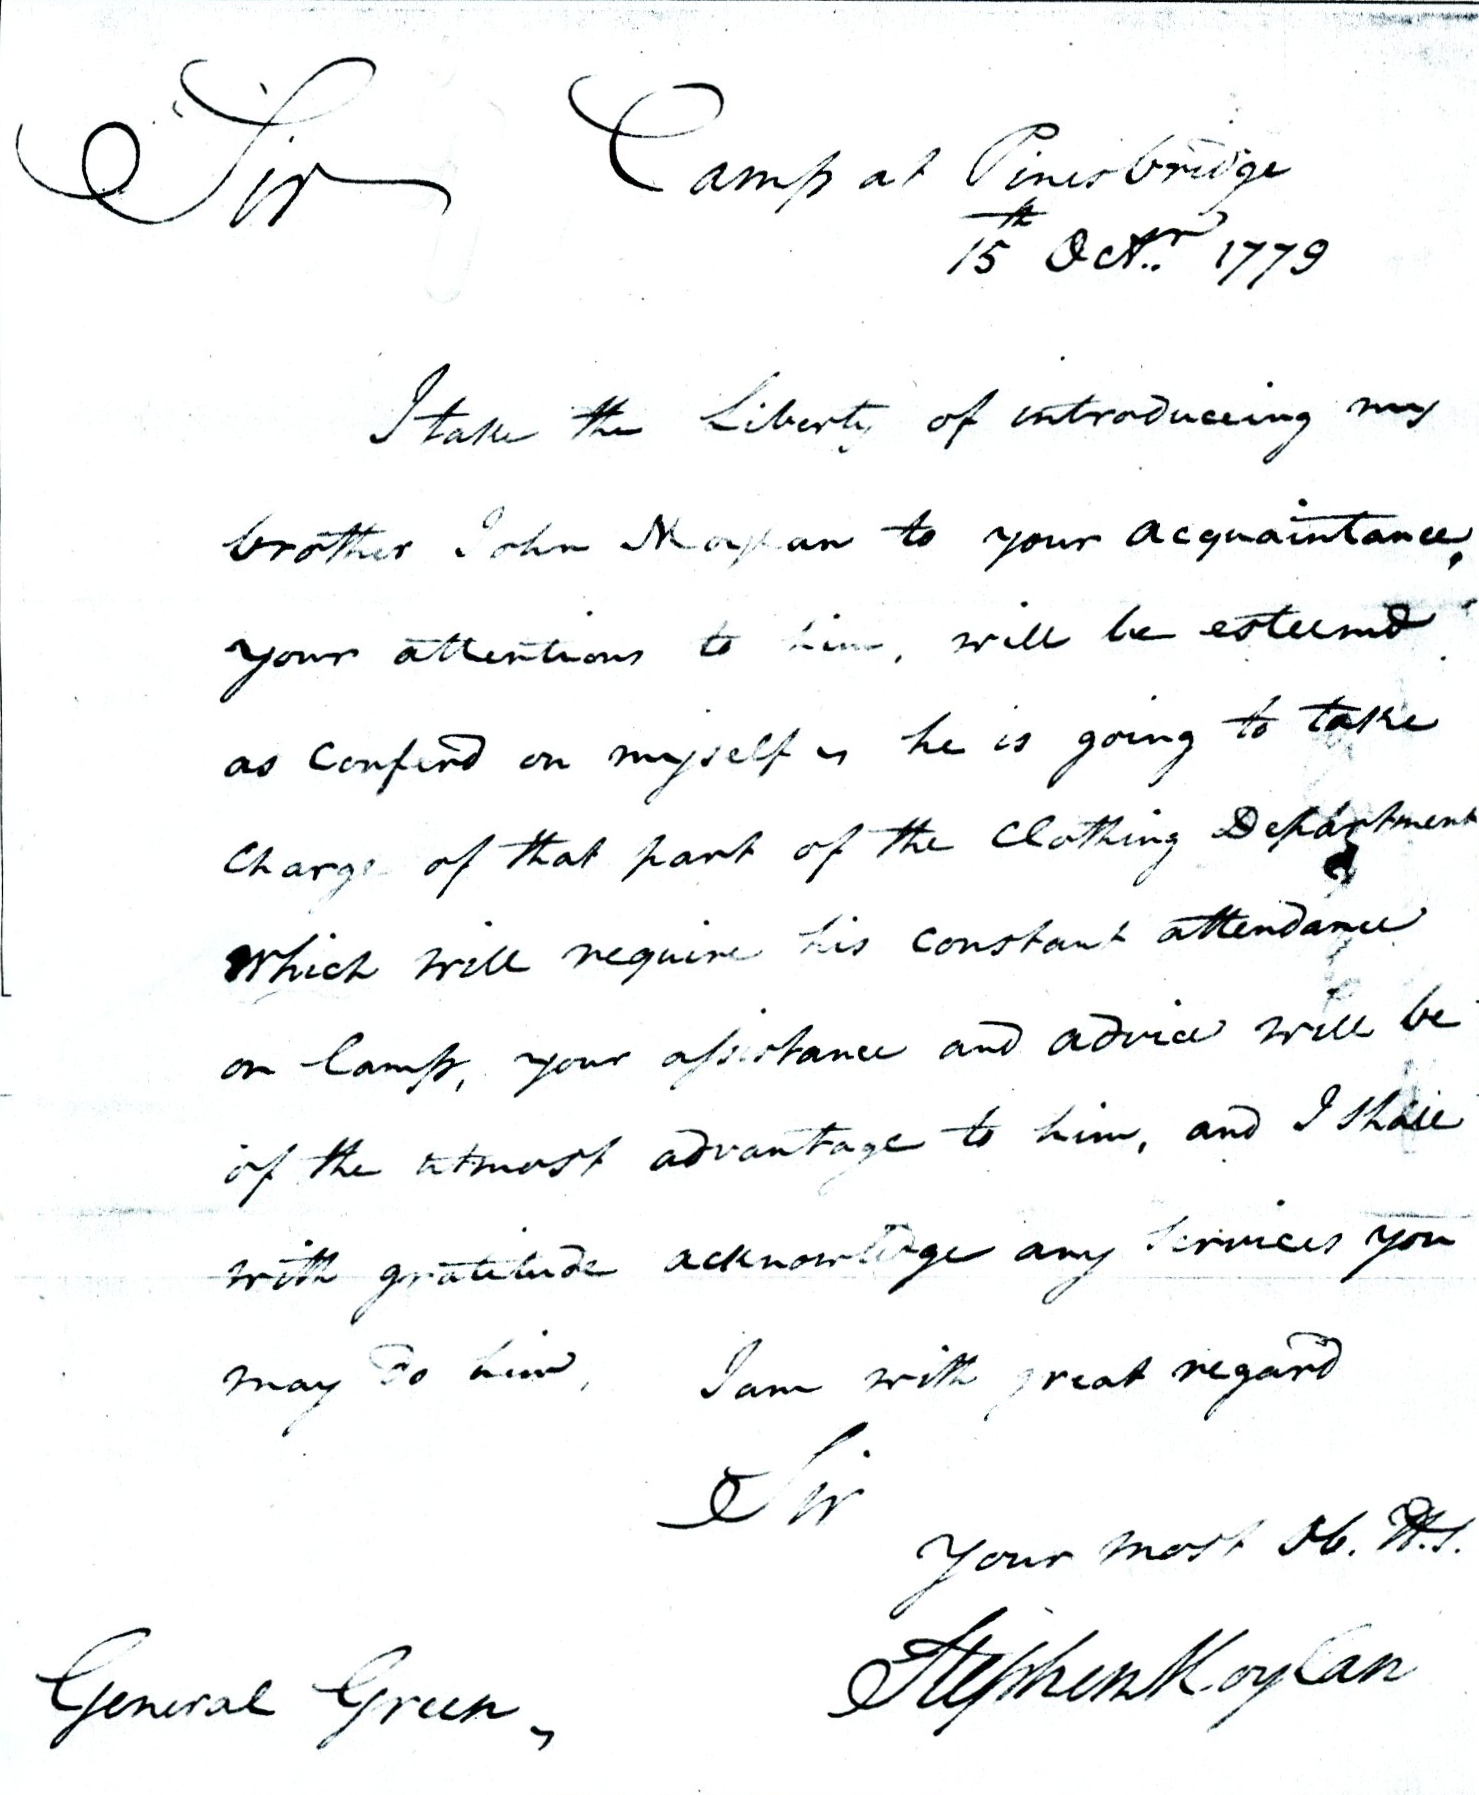 Sir Camp at Pinesbridge
15th Octr. 1779
I take the Liberty of introduceing my
brother John Moylan to your acquaintance,
your attentions to him, will be esteemd
as Conferd on myself, he is going to take
Charge of that part of the Clothing Department
which will require his constant attendance
on Camp, your assistance and advice will be
of the utmost advantage to him, and I shall
with gratitude acknowledge any services you
may do him, I am with great regard
Sir
Your most Ob. H.S.
Stephen Moylan
General Green,